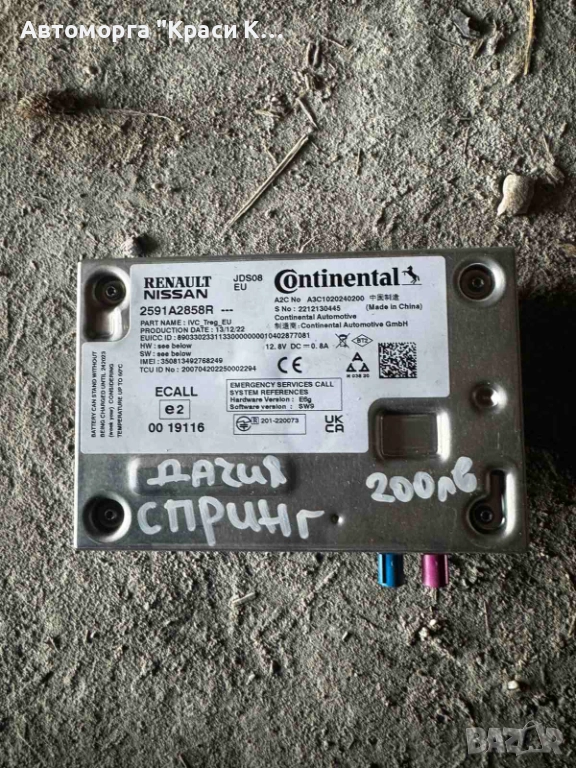 Автоморга "Краси К...
RENAULT
NISSAN
JDS08
EU
Continental
2591A2858R ---
A2C No A3C1020240200 中国制造
S No : 2212130445 (Made in China)
PART NAME : IVC_Treg_EU
Continental Automotive
PRODUCTION DATE : 13/12/22
制造商 : Continental Automotive GmbH
EUICC ID : 89033023311330000000010402877081
HW : see below
12.8V DC= 0.8A
SW : see below
IMEI : 350813492768249
TCU ID No : 200704202250002294
BATTERY CAN STAND WITHOUT
BEING CHARGED UNTIL
CONSIDERING
TEMPERATURE UP TO 50°C
ECALL
e2
00 19116
EMERGENCY SERVICES CALL
SYSTEM REFERENCES
Hardware Version : Efig
Software version : SW9
R 201-220073
CE
UK
CA
ДАЧИЯ
СПРИНГ
200лв
bazar